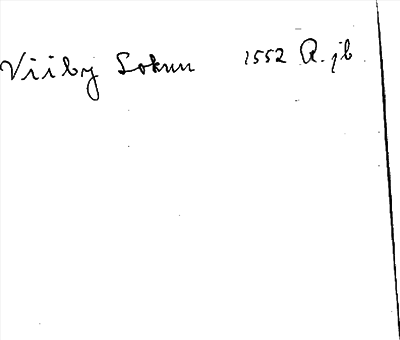 Viiby Soknn 1552 R. jb.